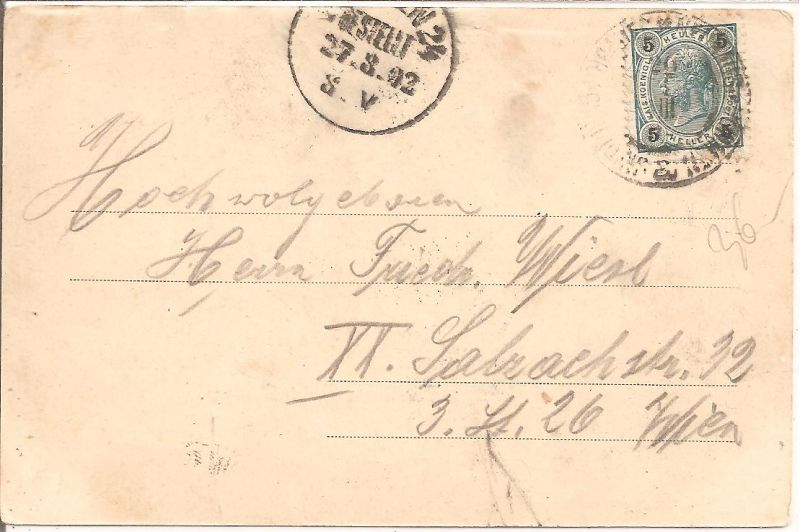 BESTELLT
27.3.02
8. V
5 HELLER 5
5 HELLER 5
Hochwolgeboren
Herrn Friedr. Wiesl
XX. Salzachstr. 32
3. St. 26 Wien
26